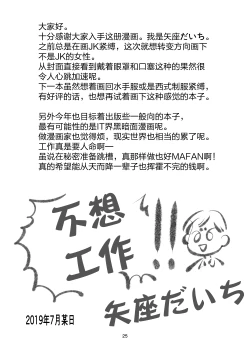 大家好。
十分感谢大家入手这册漫画。我是矢座だいち。
之前总是在画JK紧缚，这次就想转变方向画下
不是JK的女性。
从封面直接看到戴着眼罩和口塞这种的果然很
令人心跳加速呢。
下一本虽然想着画回水手服或是西式制服紧缚，
有好评的话，也想再试着画下这种感觉的本子。

另外今年也目标着出版些一般向的本子，
最有可能性的是IT界黑暗面漫画呢。
做漫画家也忙得很烦，现实世界也相当的累了呢。
工作真是要人命啊一
虽说在秘密准备跳槽，真那样做也好MAFAN啊！
真的希望能从天而降一辈子也挥霍不完的钱啊。
不想
工作!!!
2019年7月某日
矢座だいち
25